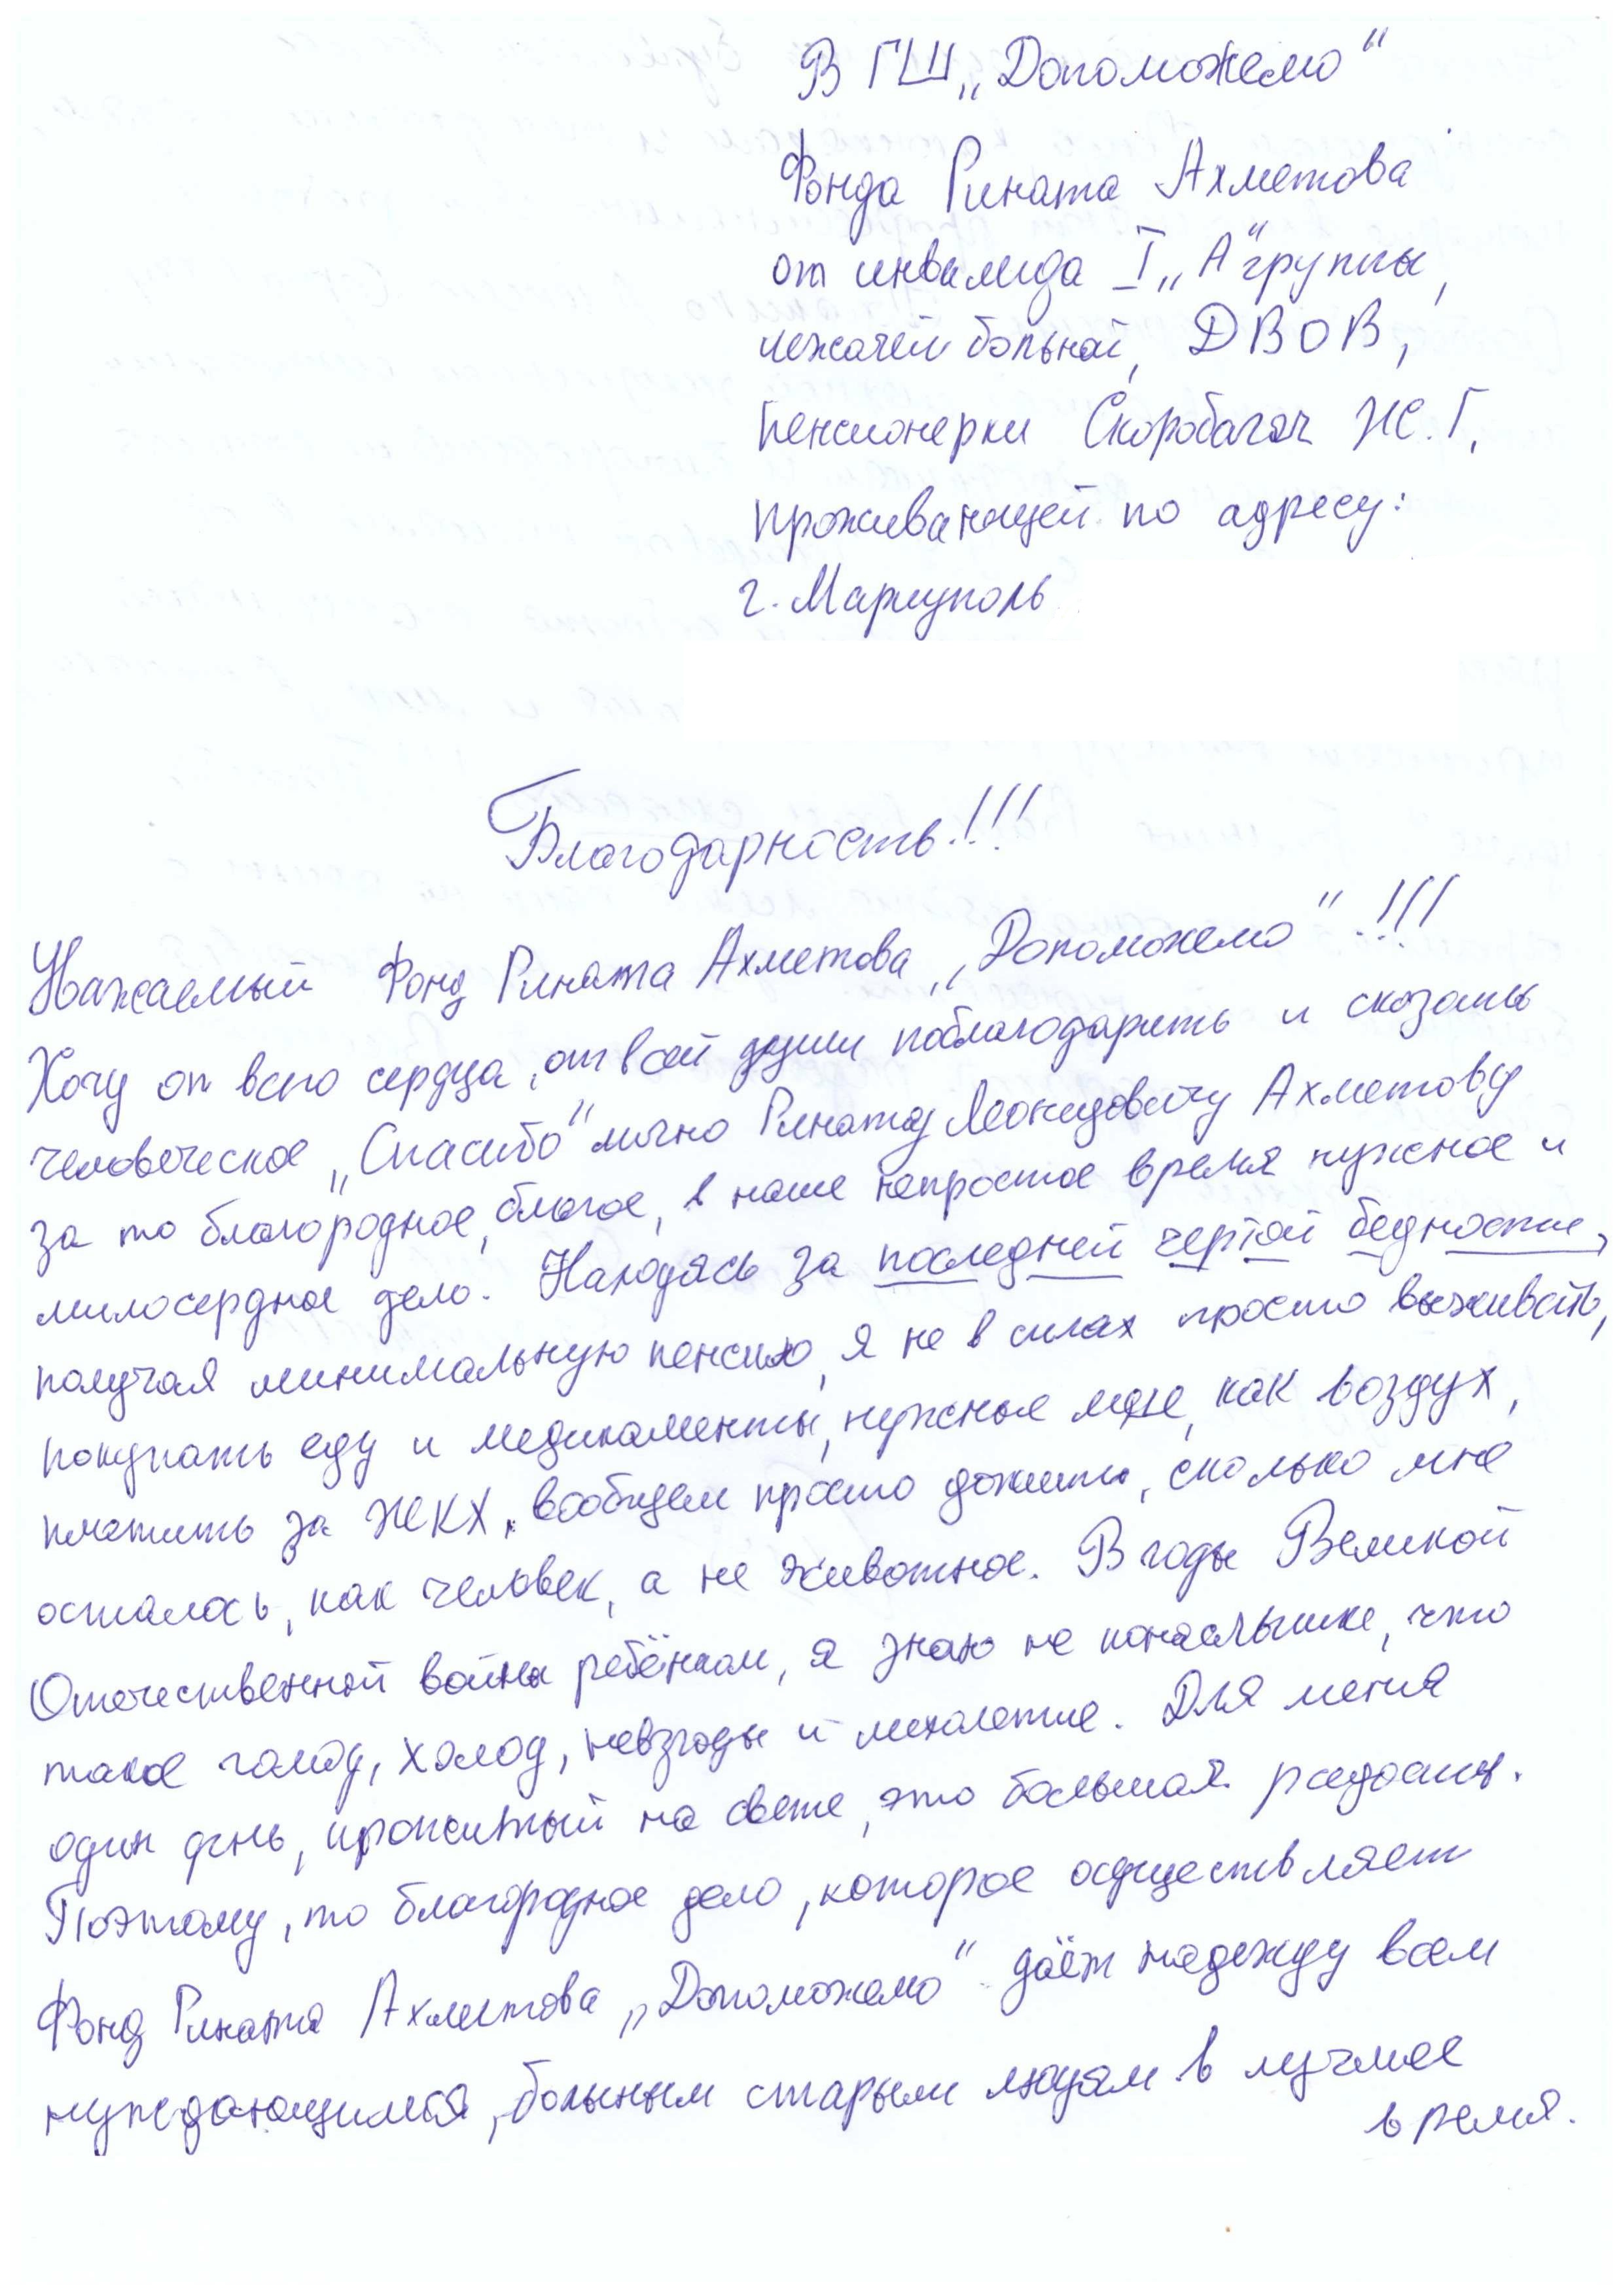 В ГШ „Допоможемо“
Фонда Рината Ахметова
от инвалида I „А“ группы,
лежачей больной, ДВОВ,
пенсионерки Скоробагач Ж.Г.
проживающей по адресу:
г. Мариуполь
Благодарность!!!
Уважаемый Фонд Рината Ахметова „Допоможемо“!!!
Хочу от всего сердца, от всей души поблагодарить и сказать
человеческое „Спасибо“ лично Ринату Леонидовичу Ахметову
за то благородное, благое, в наше непростое время нужное и
милосердное дело. Находясь за последней чертой бедности,
получая минимальную пенсию, я не в силах просто выживать,
покупать еду и медикаменты, нужные мне, как воздух,
платить за ЖКХ, вообщем просто дожить, сколько мне
осталось, как человек, а не животное. В годы Великой
Отечественной войны ребёнком, я знаю не понаслышке, что
такое голод, холод, невзгоды и лихолетие. Для меня
один день, прожитый на свете, это большая радость.
Поэтому, то благородное дело, которое осуществляет
Фонд Рината Ахметова „Допоможемо“ даёт надежду всем
нуждающимся, больным старым людям в лучшее
время.